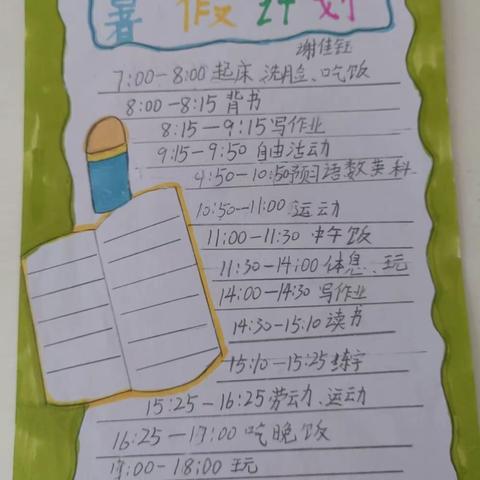 暑假计划
谢佳钰
7:00-8:00 起床、洗脸、吃饭
8:00-8:15 背书
8:15-9:15 写作业
9:15-9:50 自由活动
9:50-10:50 预习语数英科
10:50-11:00 运动
11:00-11:30 中午饭
11:30-14:00 体息、玩
14:00-14:30 写作业
14:30-15:10 读书
15:10-15:25 练字
15:25-16:25 劳动、运动
16:25-17:00 吃晚饭
17:00-18:00 玩